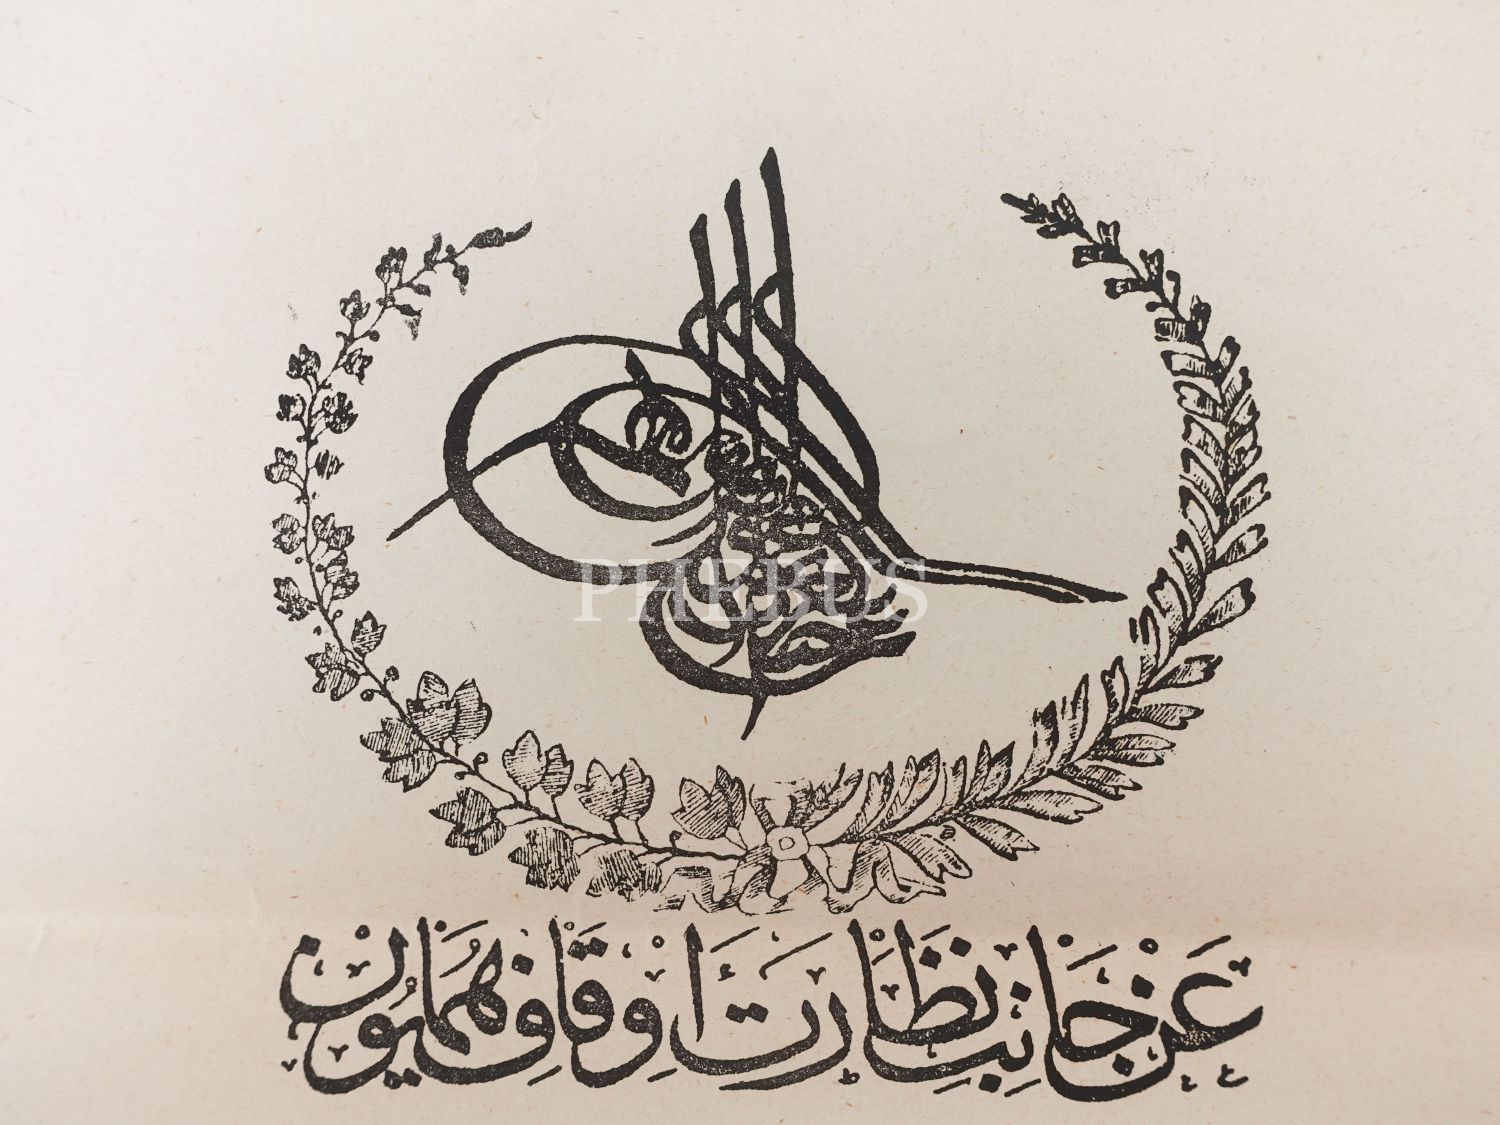 PHEBUS
عَنْ جَانِبِ نَظَارَتِ اَوْقَافِ هُمَايُونْ